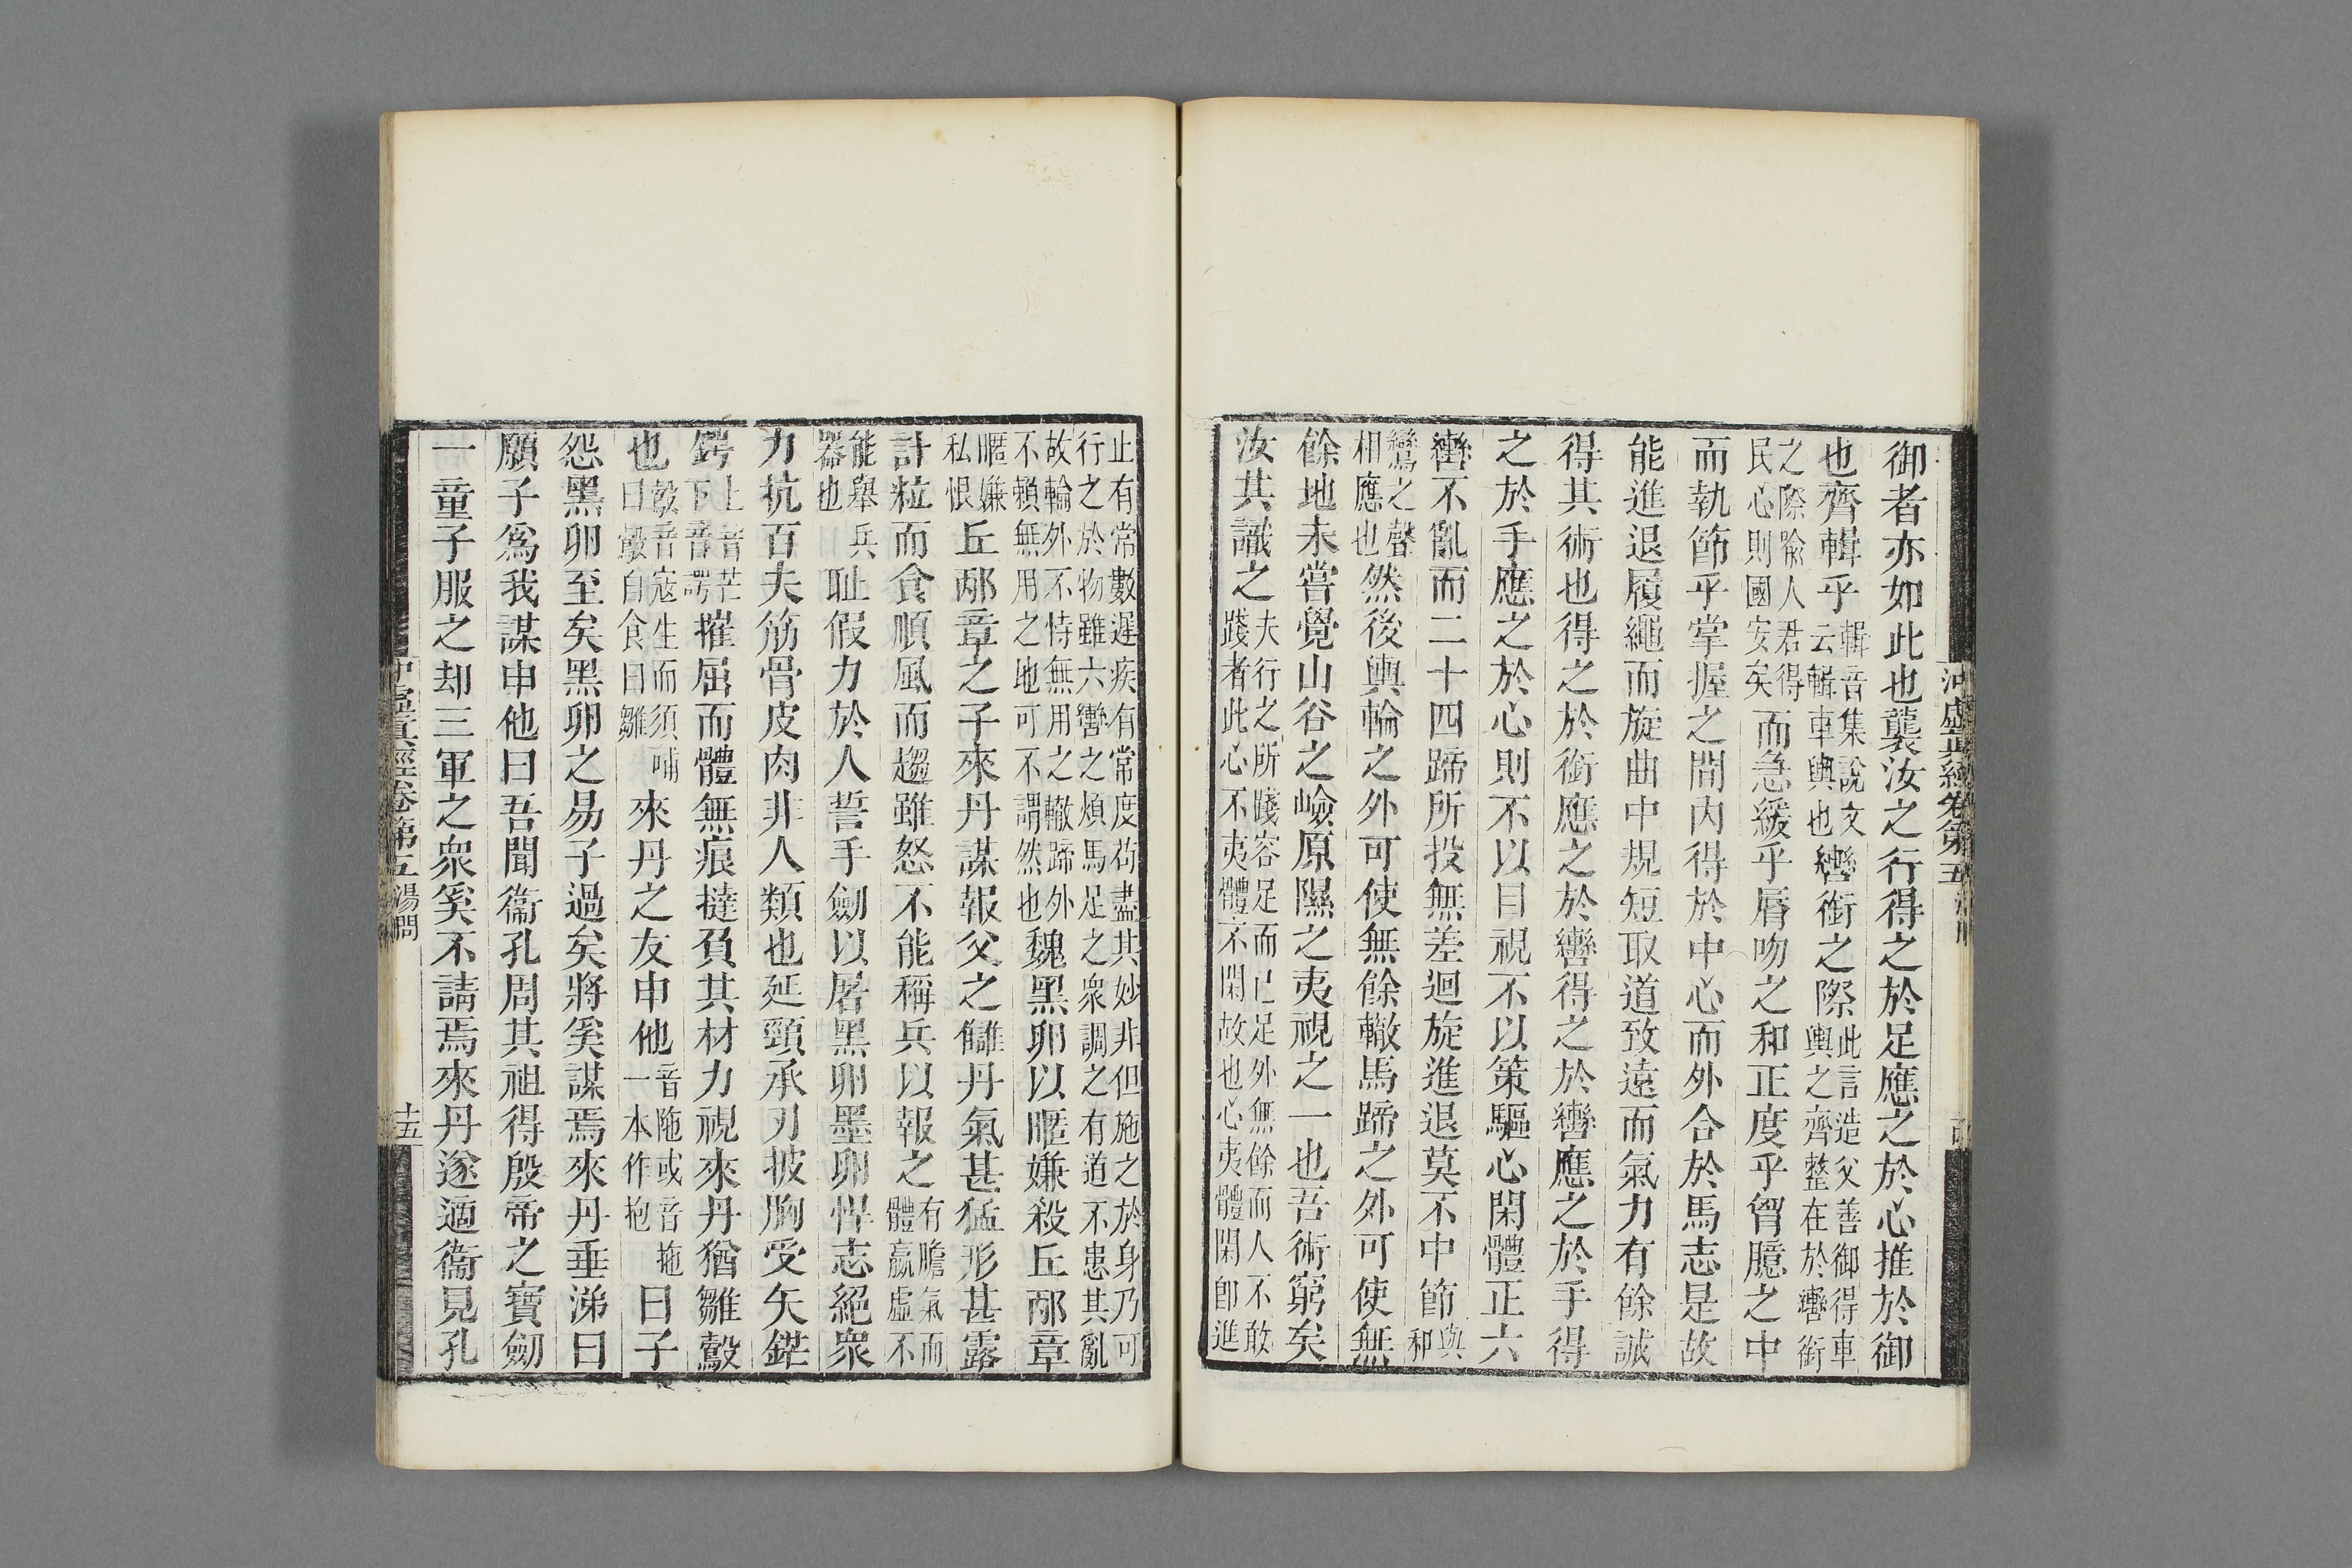 御者亦如此也襲汝之行得之於足應之於心推於御
也齊輯乎輯音集說文云輯車輿也轡銜之際此言造父善御得車輿之齊整在於轡銜
之際喻人君得民心則國安矣而急緩乎脣吻之和正度乎胷臆之中
而執節乎掌握之間內得於中心而外合於馬志是故
能進退履繩而旋曲中規矩取道致遠而氣力有餘誠
得其術也得之於銜應之於轡得之於轡應之於手得
之於手應之於心則不以目視不以策驅心閑體正六
轡不亂而二十四蹄所投無差迴旋進退莫不中節與和
鸞之聲相應也然後輿輪之外可使無餘轍馬蹄之外可使無
餘地未嘗覺山谷之嶮原隰之夷視之一也吾術窮矣
汝其識之夫行之所踐容足而已足外無餘而人不敢踐者此心不夷體不閑故也心夷體閑卽進
止有常數遲疾有常度苟盡其妙非但施之於身乃可行之於物雖六轡之煩馬足之衆調之有道不患其亂
故輪外不恃無用之轍蹄外不賴無用之地可不謂然也魏黑卵以暱嫌殺丘邴章
暱嫌私恨丘邴章之子來丹謀報父之讎丹氣甚猛形甚露
計粒而食順風而趨雖怒不能稱兵以報之有膽氣而體羸虛不
能舉兵器也恥假力於人誓手劒以屠黑卵墨卵悍志絕衆
力抗百夫筋骨皮肉非人類也延頸承刃披胸受矢鋩
鍔上音芒下音諤摧屈而體無痕撻負其材力視來丹猶雛鷇
也鷇音寇生而須哺曰鷇自食曰雛來丹之友申他音陁或音拖一本作抱曰子
怨黑卵至矣黑卵之易子過矣將奚謀焉來丹垂涕曰
願子爲我謀申他曰吾聞衞孔周其祖得殷帝之寶劒
一童子服之却三軍之衆奚不請焉來丹遂適衞見孔
沖虛真經卷第五湯問 十五